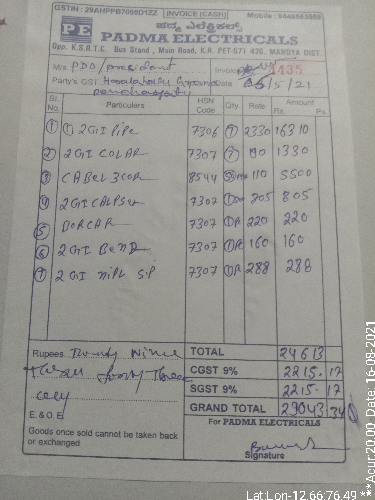 GSTIN : 29AHPPB7098D1ZZ INVOICE (CASH) Mobile : 9448503959
ಪದ್ಮ ಎಲೆಕ್ಟ್ರಿಕಲ್ಸ್
PE PADMA ELECTRICALS
Opp. K.S.R.T.C. Bus Stand , Main Road, K.R. PET-571 426. MANDYA DIST.
M/s PDO/president Invoice 1435
Party's GST Date 05/5/21
Sl. No. Particulars HSN Code Qty. Rate Amount Rs. Ps.
1 2GI Pipe 7306 7 2330 16310
2 2GI COLAR 7307 7 190 1330
3 CABEL 3COR 8544 110 5500
4 7307 805 805
5 BORCAR 7307 220 220
6 2GI Bend 7307 160 160
7 2 GI NIPL 7307 288 288
Rupees Twenty Nine TOTAL 24613
CGST 9% 2215-17
Forty Three SGST 9% 2215-17
only GRAND TOTAL 29043 34
E. & O.E. For PADMA ELECTRICALS
Goods once sold cannot be taken back
or exchanged
Signature
Lat:Lon-12.66:76.49 ***Acur:20.00, Date: 16-08-2021